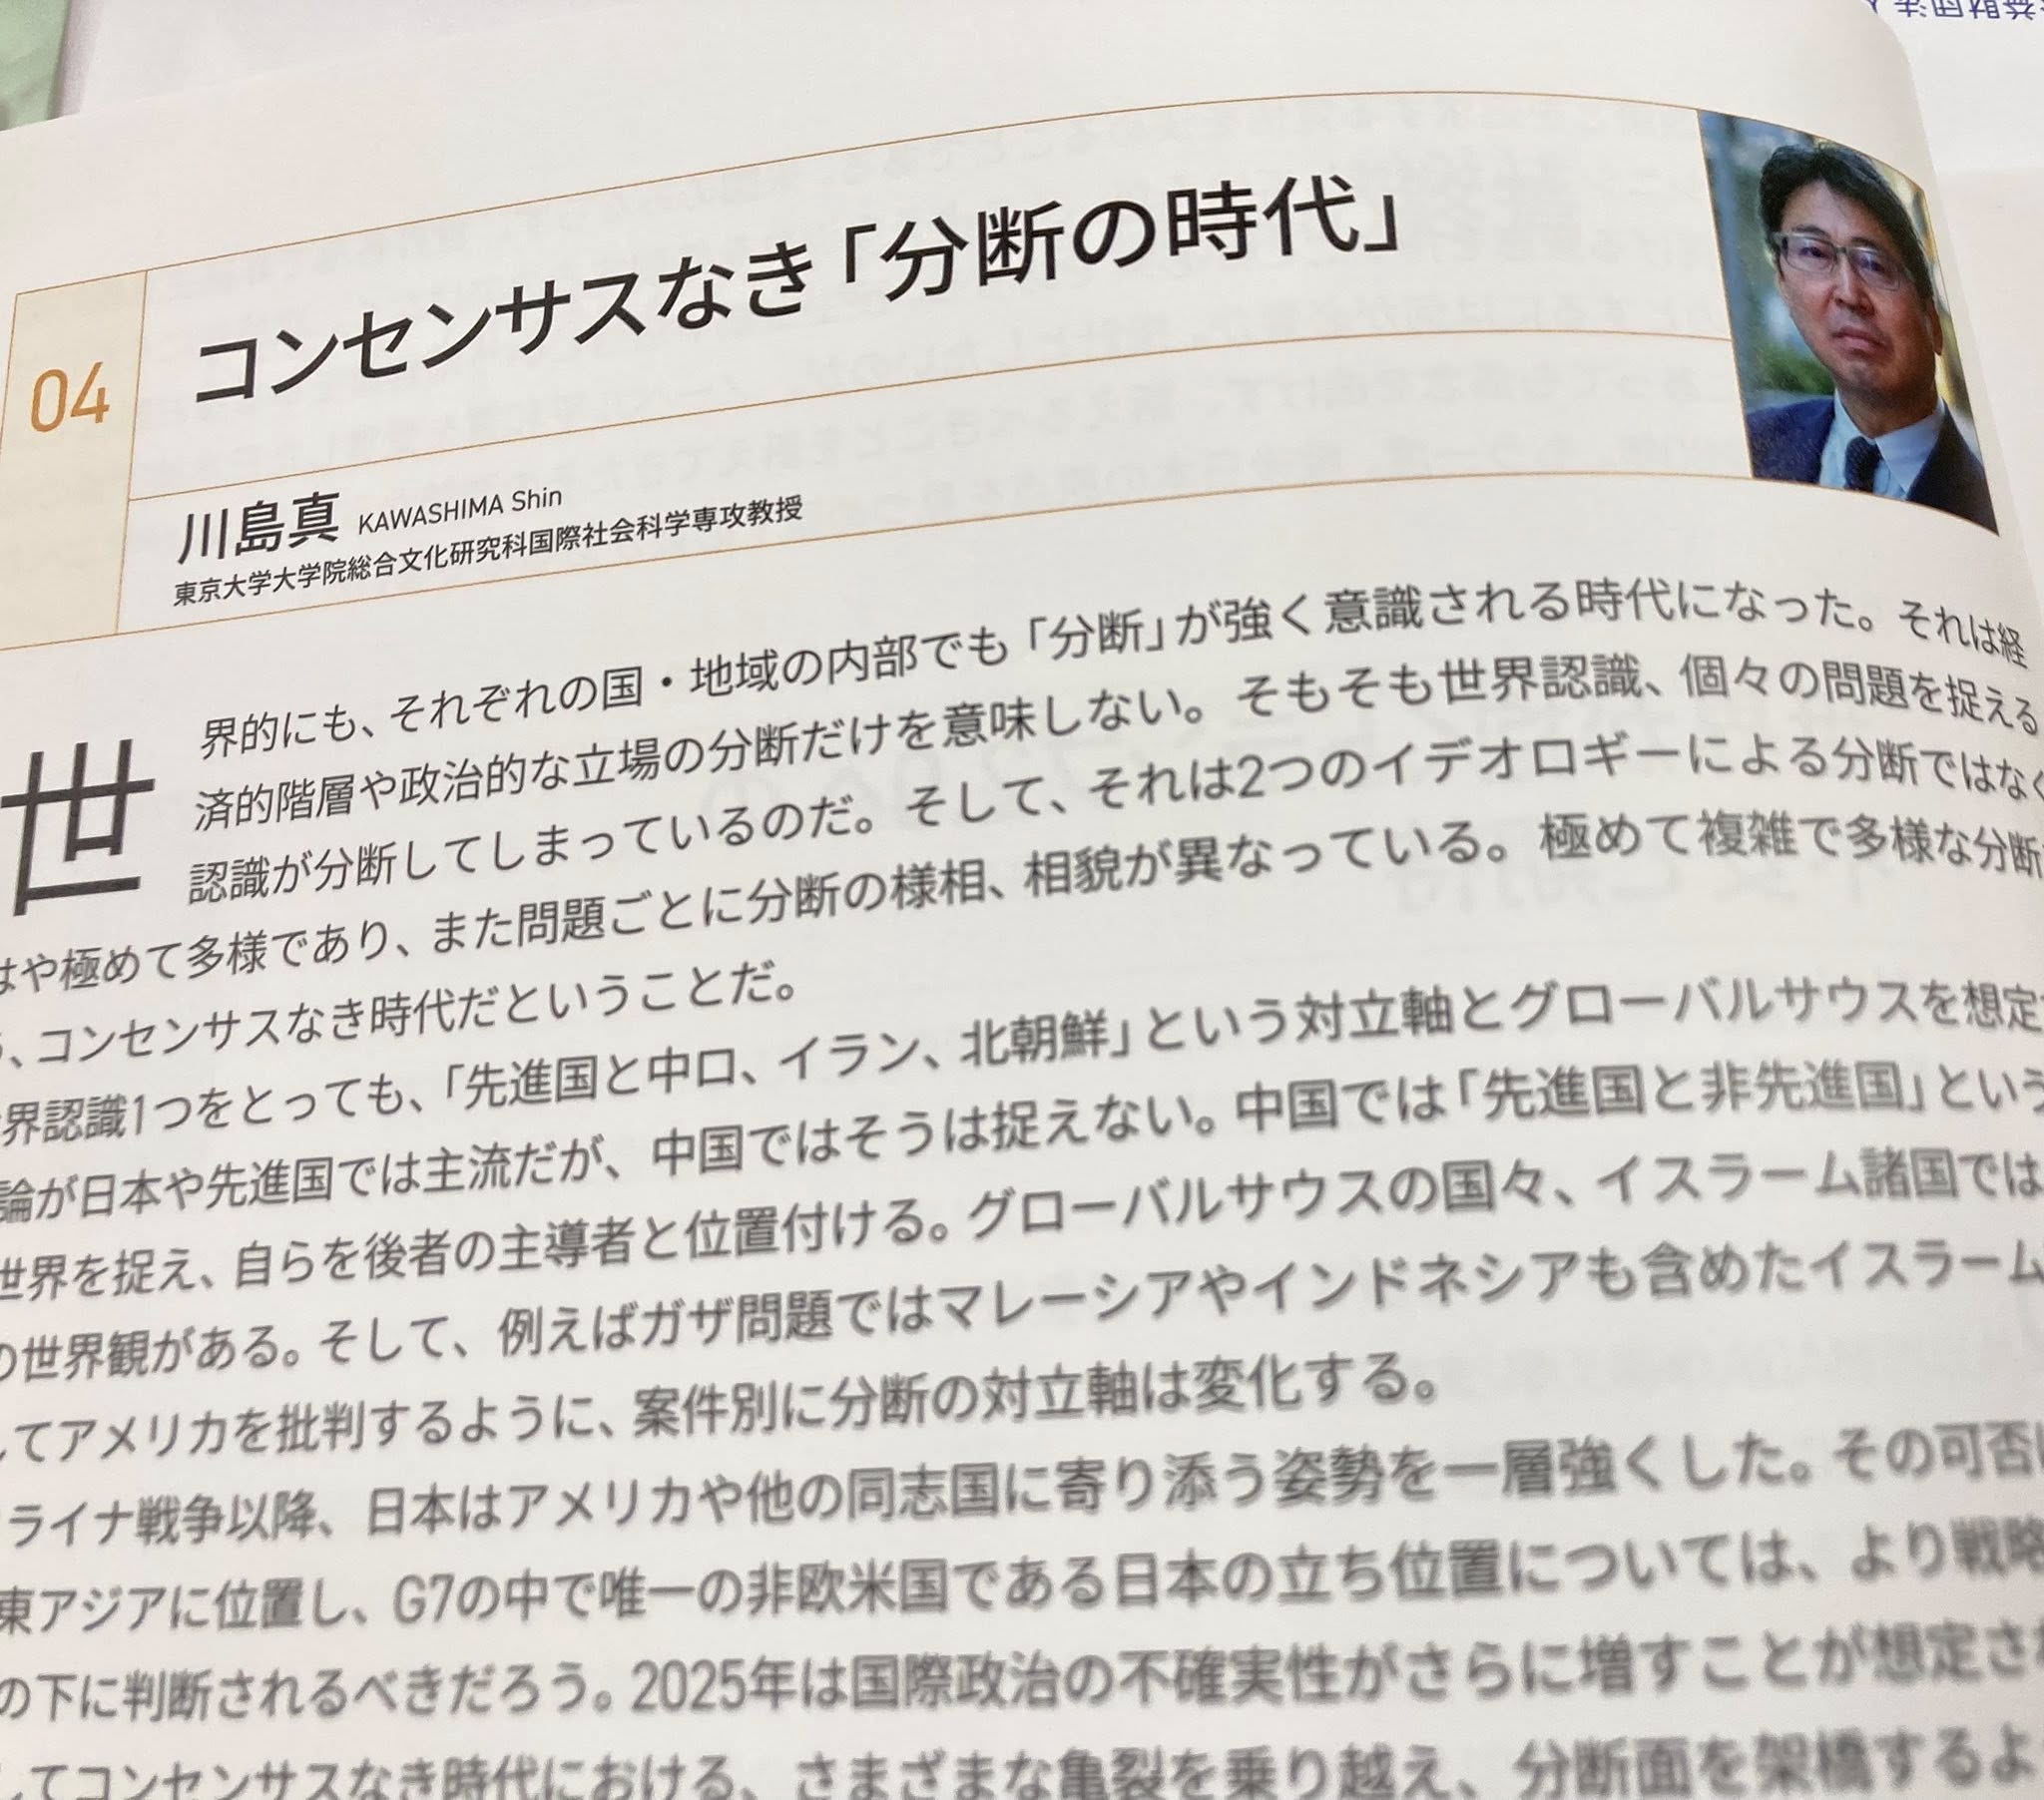 益財団法人
04
コンセンサスなき「分断の時代」
川島真 KAWASHIMA Shin
東京大学大学院総合文化研究科国際社会科学専攻教授
世界的にも、それぞれの国・地域の内部でも「分断」が強く意識される時代になった。それは経
済的階層や政治的な立場の分断だけを意味しない。そもそも世界認識、個々の問題を捉える
認識が分断してしまっているのだ。そして、それは2つのイデオロギーによる分断ではなく
はや極めて多様であり、また問題ごとに分断の様相、相貌が異なっている。極めて複雑で多様な分断
、コンセンサスなき時代だということだ。
界認識1つをとっても、「先進国と中ロ、イラン、北朝鮮」という対立軸とグローバルサウスを想定
論が日本や先進国では主流だが、中国ではそうは捉えない。中国では「先進国と非先進国」という
世界を捉え、自らを後者の主導者と位置付ける。グローバルサウスの国々、イスラーム諸国では
の世界観がある。そして、例えばガザ問題ではマレーシアやインドネシアも含めたイスラーム
してアメリカを批判するように、案件別に分断の対立軸は変化する。
ライナ戦争以降、日本はアメリカや他の同志国に寄り添う姿勢を一層強くした。その可否
東アジアに位置し、G7の中で唯一の非欧米国である日本の立ち位置については、より戦略
の下に判断されるべきだろう。2025年は国際政治の不確実性がさらに増すことが想定さ
してコンセンサスなき時代における、さまざまな亀裂を乗り越え、分断面を架橋するよ